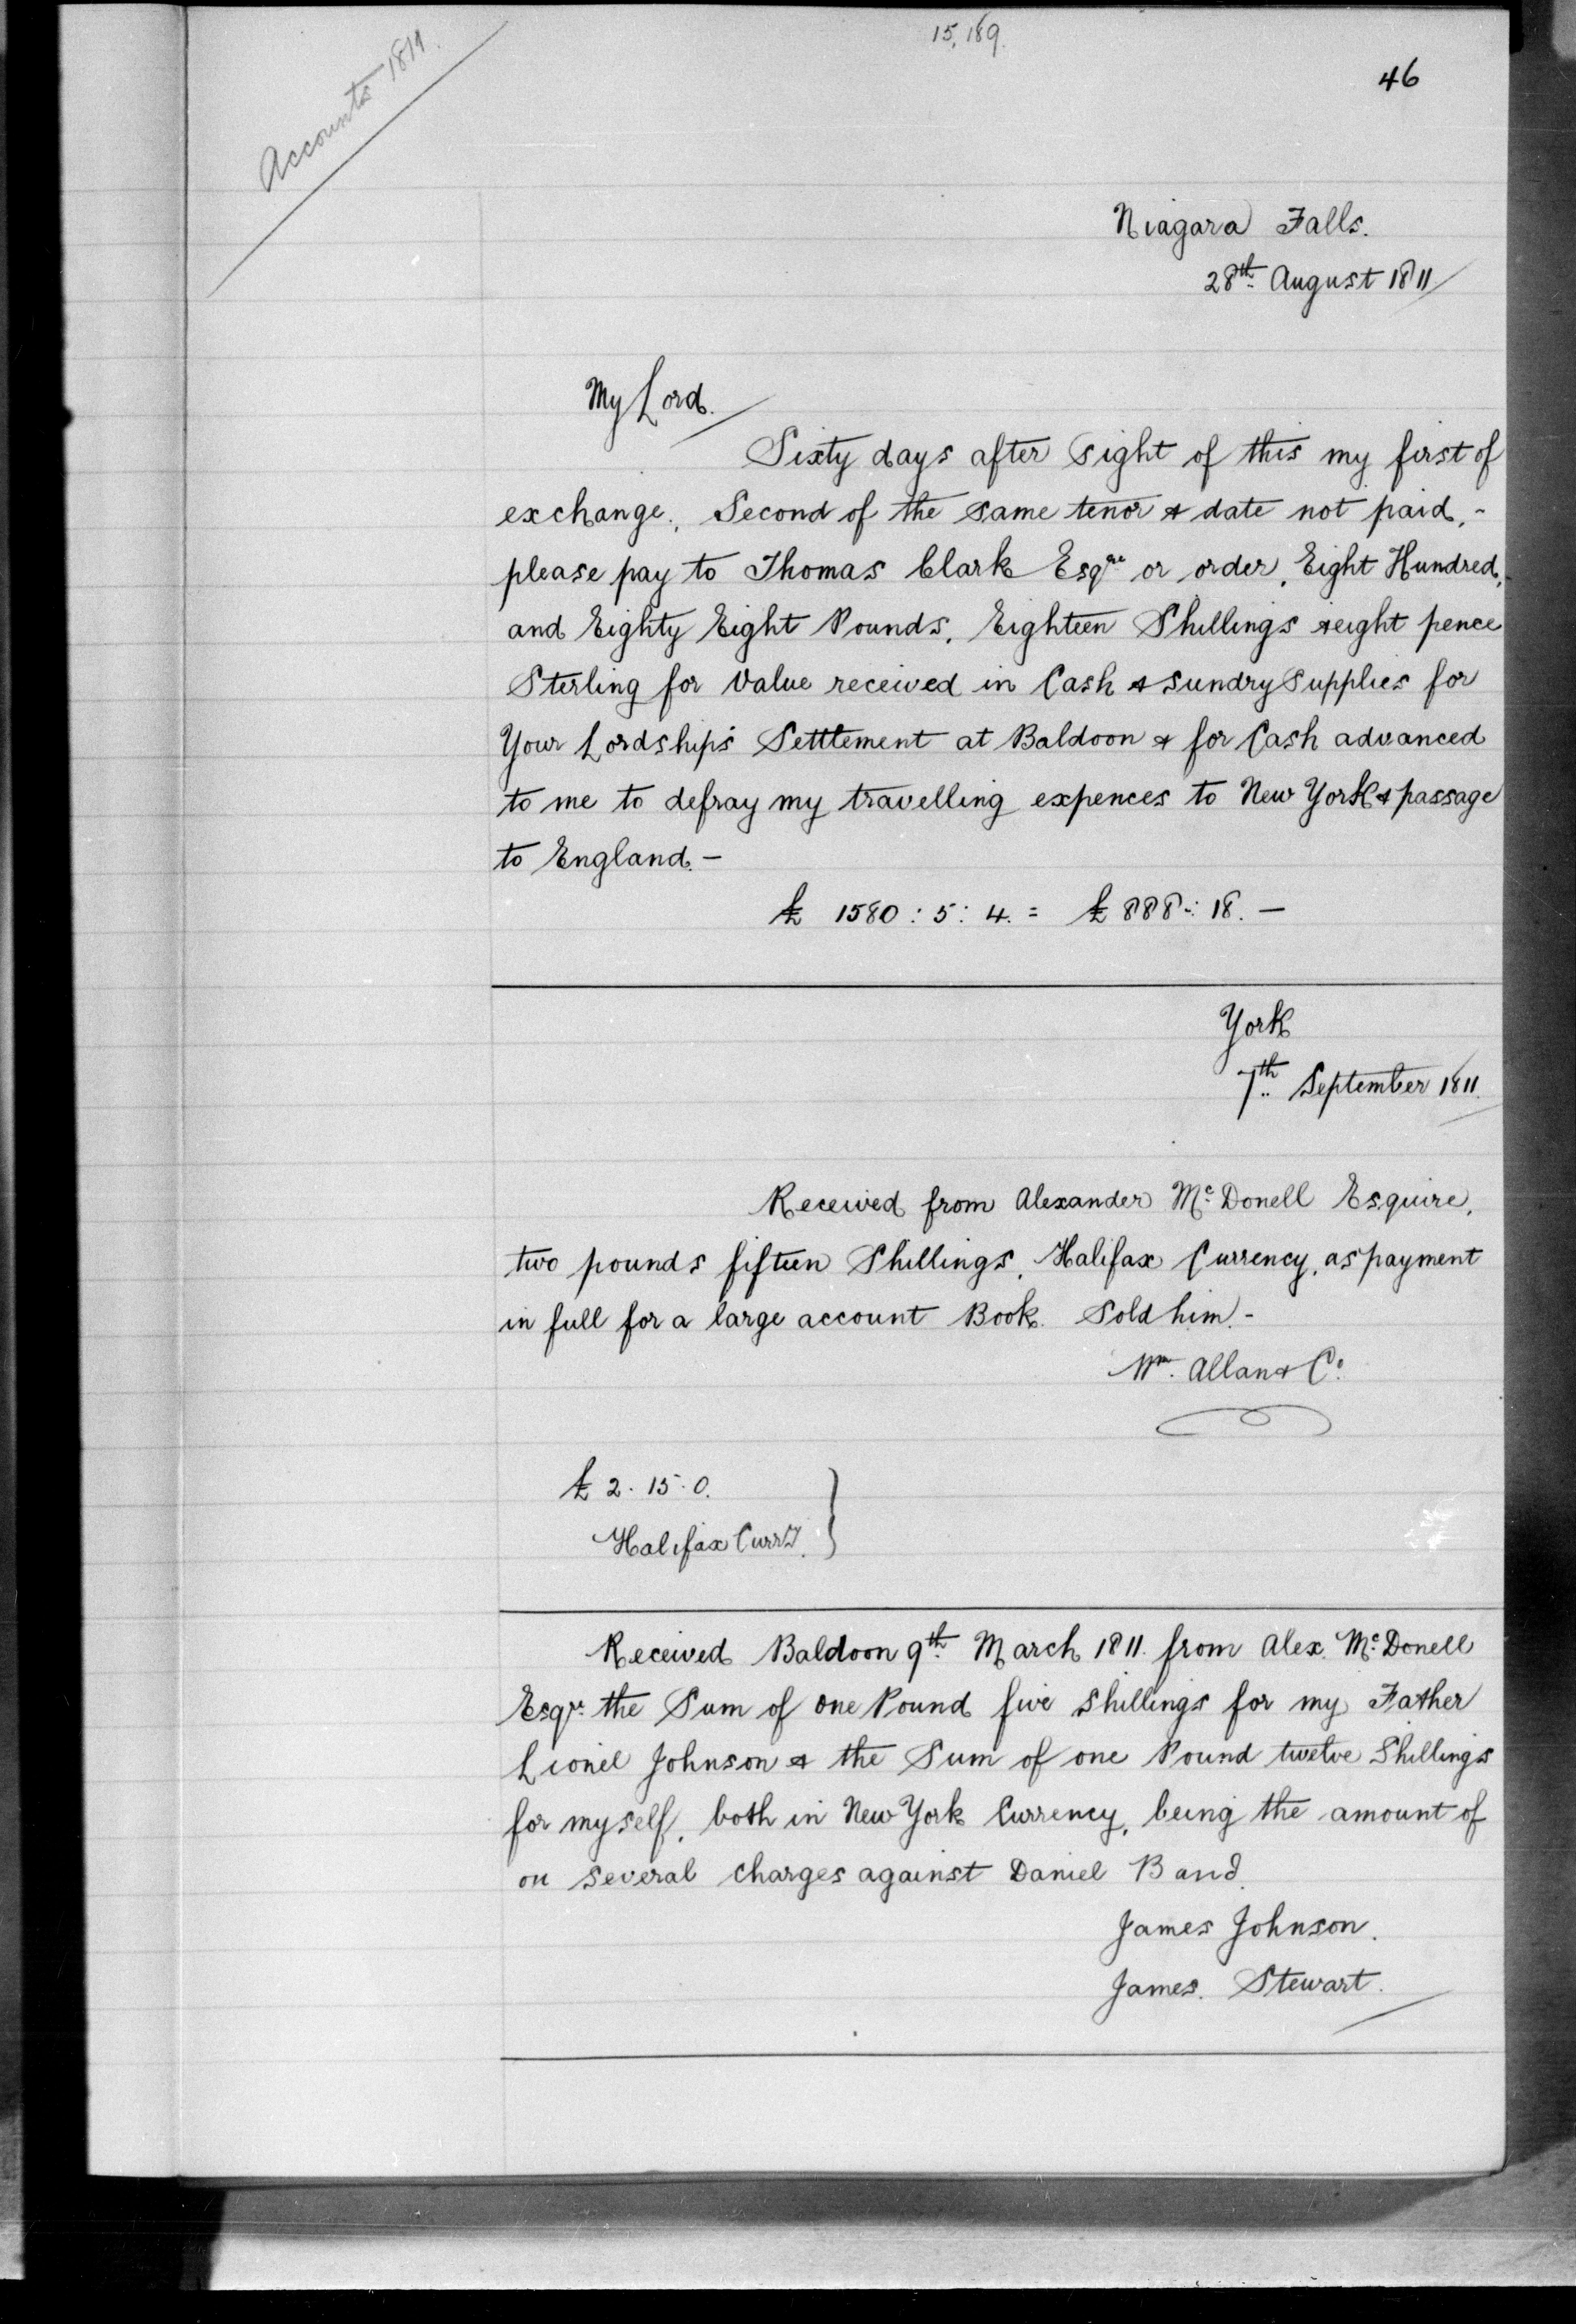 15,189.
46
Accounts 1811.
Niagara Falls.
28th August 1811
My Lord.
Sixty days after Sight of this my first of
exchange, Second of the same tenor & date not paid, -
please pay to Thomas Clark Esqre or order, Eight Hundred,
and Eighty Eight Pounds, Eighteen Shillings & eight pence
Sterling for Value received in Cash & Sundry Supplies for
Your Lordship's Setttement at Baldoon & for Cash advanced
to me to defray my travelling expences to New York & passage
to England. -
£ 1580 : 5 : 4. = £ 888 : 18. -
York
7th September 1811.
Received from Alexander Mc Donell Esquire,
two pounds fifteen Shillings, Halifax Currency, as payment
in full for a large account Book. Sold him. -
Wm. Allan & Co.
£ 2. 15. 0.
Halifax Curry. }
Received Baldoon 9th March 1811. from Alex. Mc Donell
Esqr. the Sum of one Pound five shillings for my Father
Lionel Johnson & the Sum of one Pound twelve Shillings
for myself, both in New York Currency, being the amount of
on several charges against Daniel Band.
James Johnson.
James. Stewart.